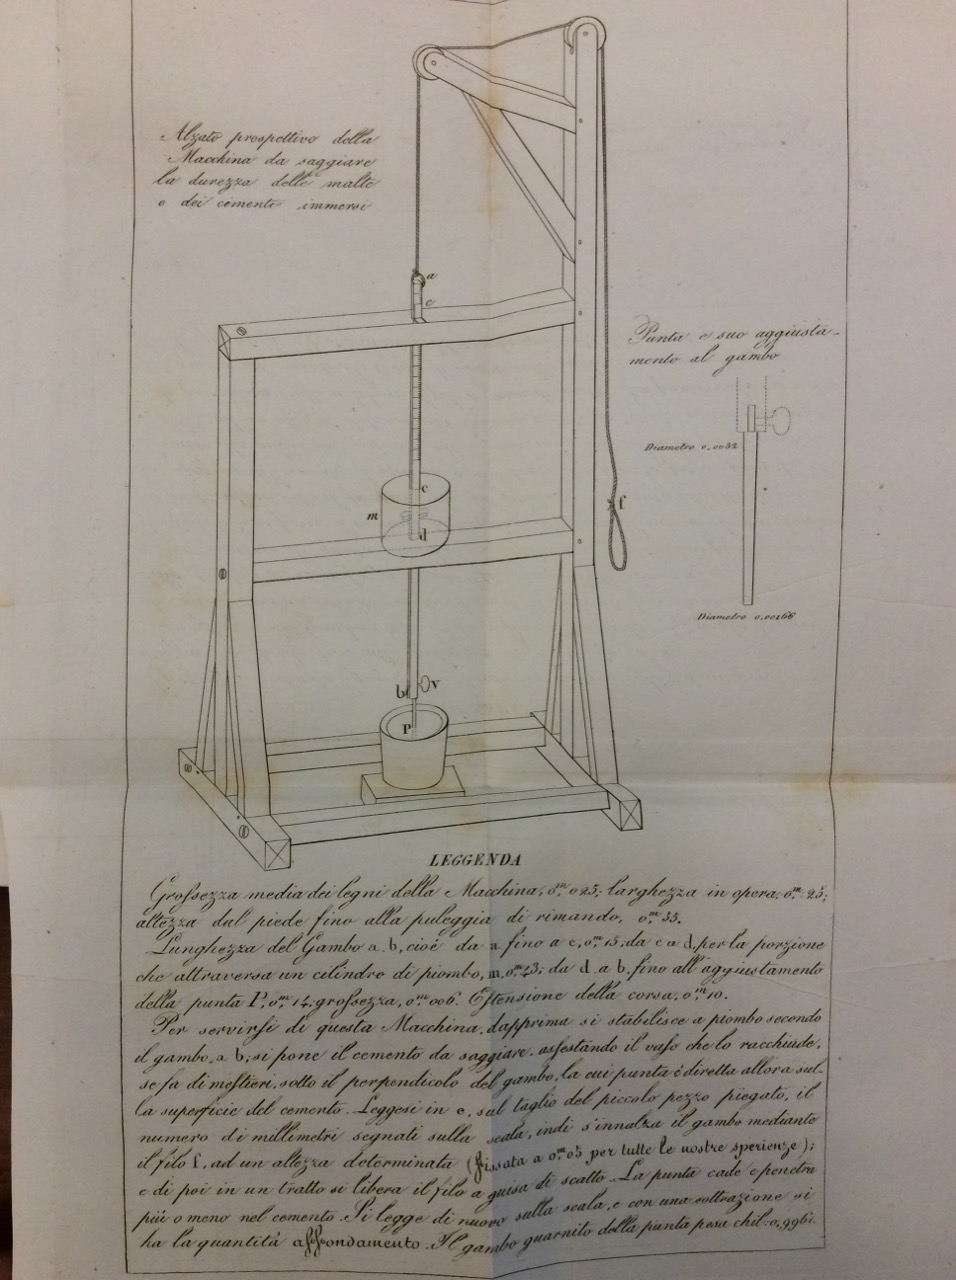 Alzato prospettivo della
Macchina da saggiare
la durezza delle malte
e dei cementi immersi
a
e
Punta e suo aggiusta-
mento al gambo
Diametro 0,0032
c
f
m
d
Diametro 0,00166
b v
P
LEGGENDA
Grossezza media dei legni della Macchina, 0.m 025; larghezza in opera, 0.m 25;
altezza dal piede fino alla puleggia di rimando, 0.m 55.
Lunghezza del Gambo a b, cioè da a fino a c, 0.m 15; da c a d, per la porzione
che attraversa un cilindro di piombo, m, 0.m 43; da d a b, fino all'aggiustamento
della punta P, 0.m 14, grossezza, 0.m 006. Estensione della corsa, 0.m 10.
Per servirsi di questa Macchina, dapprima si stabilisce a piombo secondo
il gambo a b; si pone il cemento da saggiare, assestando il vaso che lo racchiude,
se fa di mestieri, sotto il perpendicolo del gambo, la cui punta è diretta allora sul-
la superficie del cemento. Leggesi in e, sul taglio del piccolo pezzo piegato, il
numero di millimetri segnati sulla scala, indi s'innalza il gambo mediante
il filo f, ad un altezza determinata (fissata a 0.m 05 per tutte le nostre sperienze);
e di poi in un tratto si libera il filo a guisa di scatto. La punta cade e penetra
più o meno nel cemento. Si legge di nuovo sulla scala, e con una sottrazione si
ha la quantità affondamento. Il gambo guarnito della punta pesa chil. 0,996